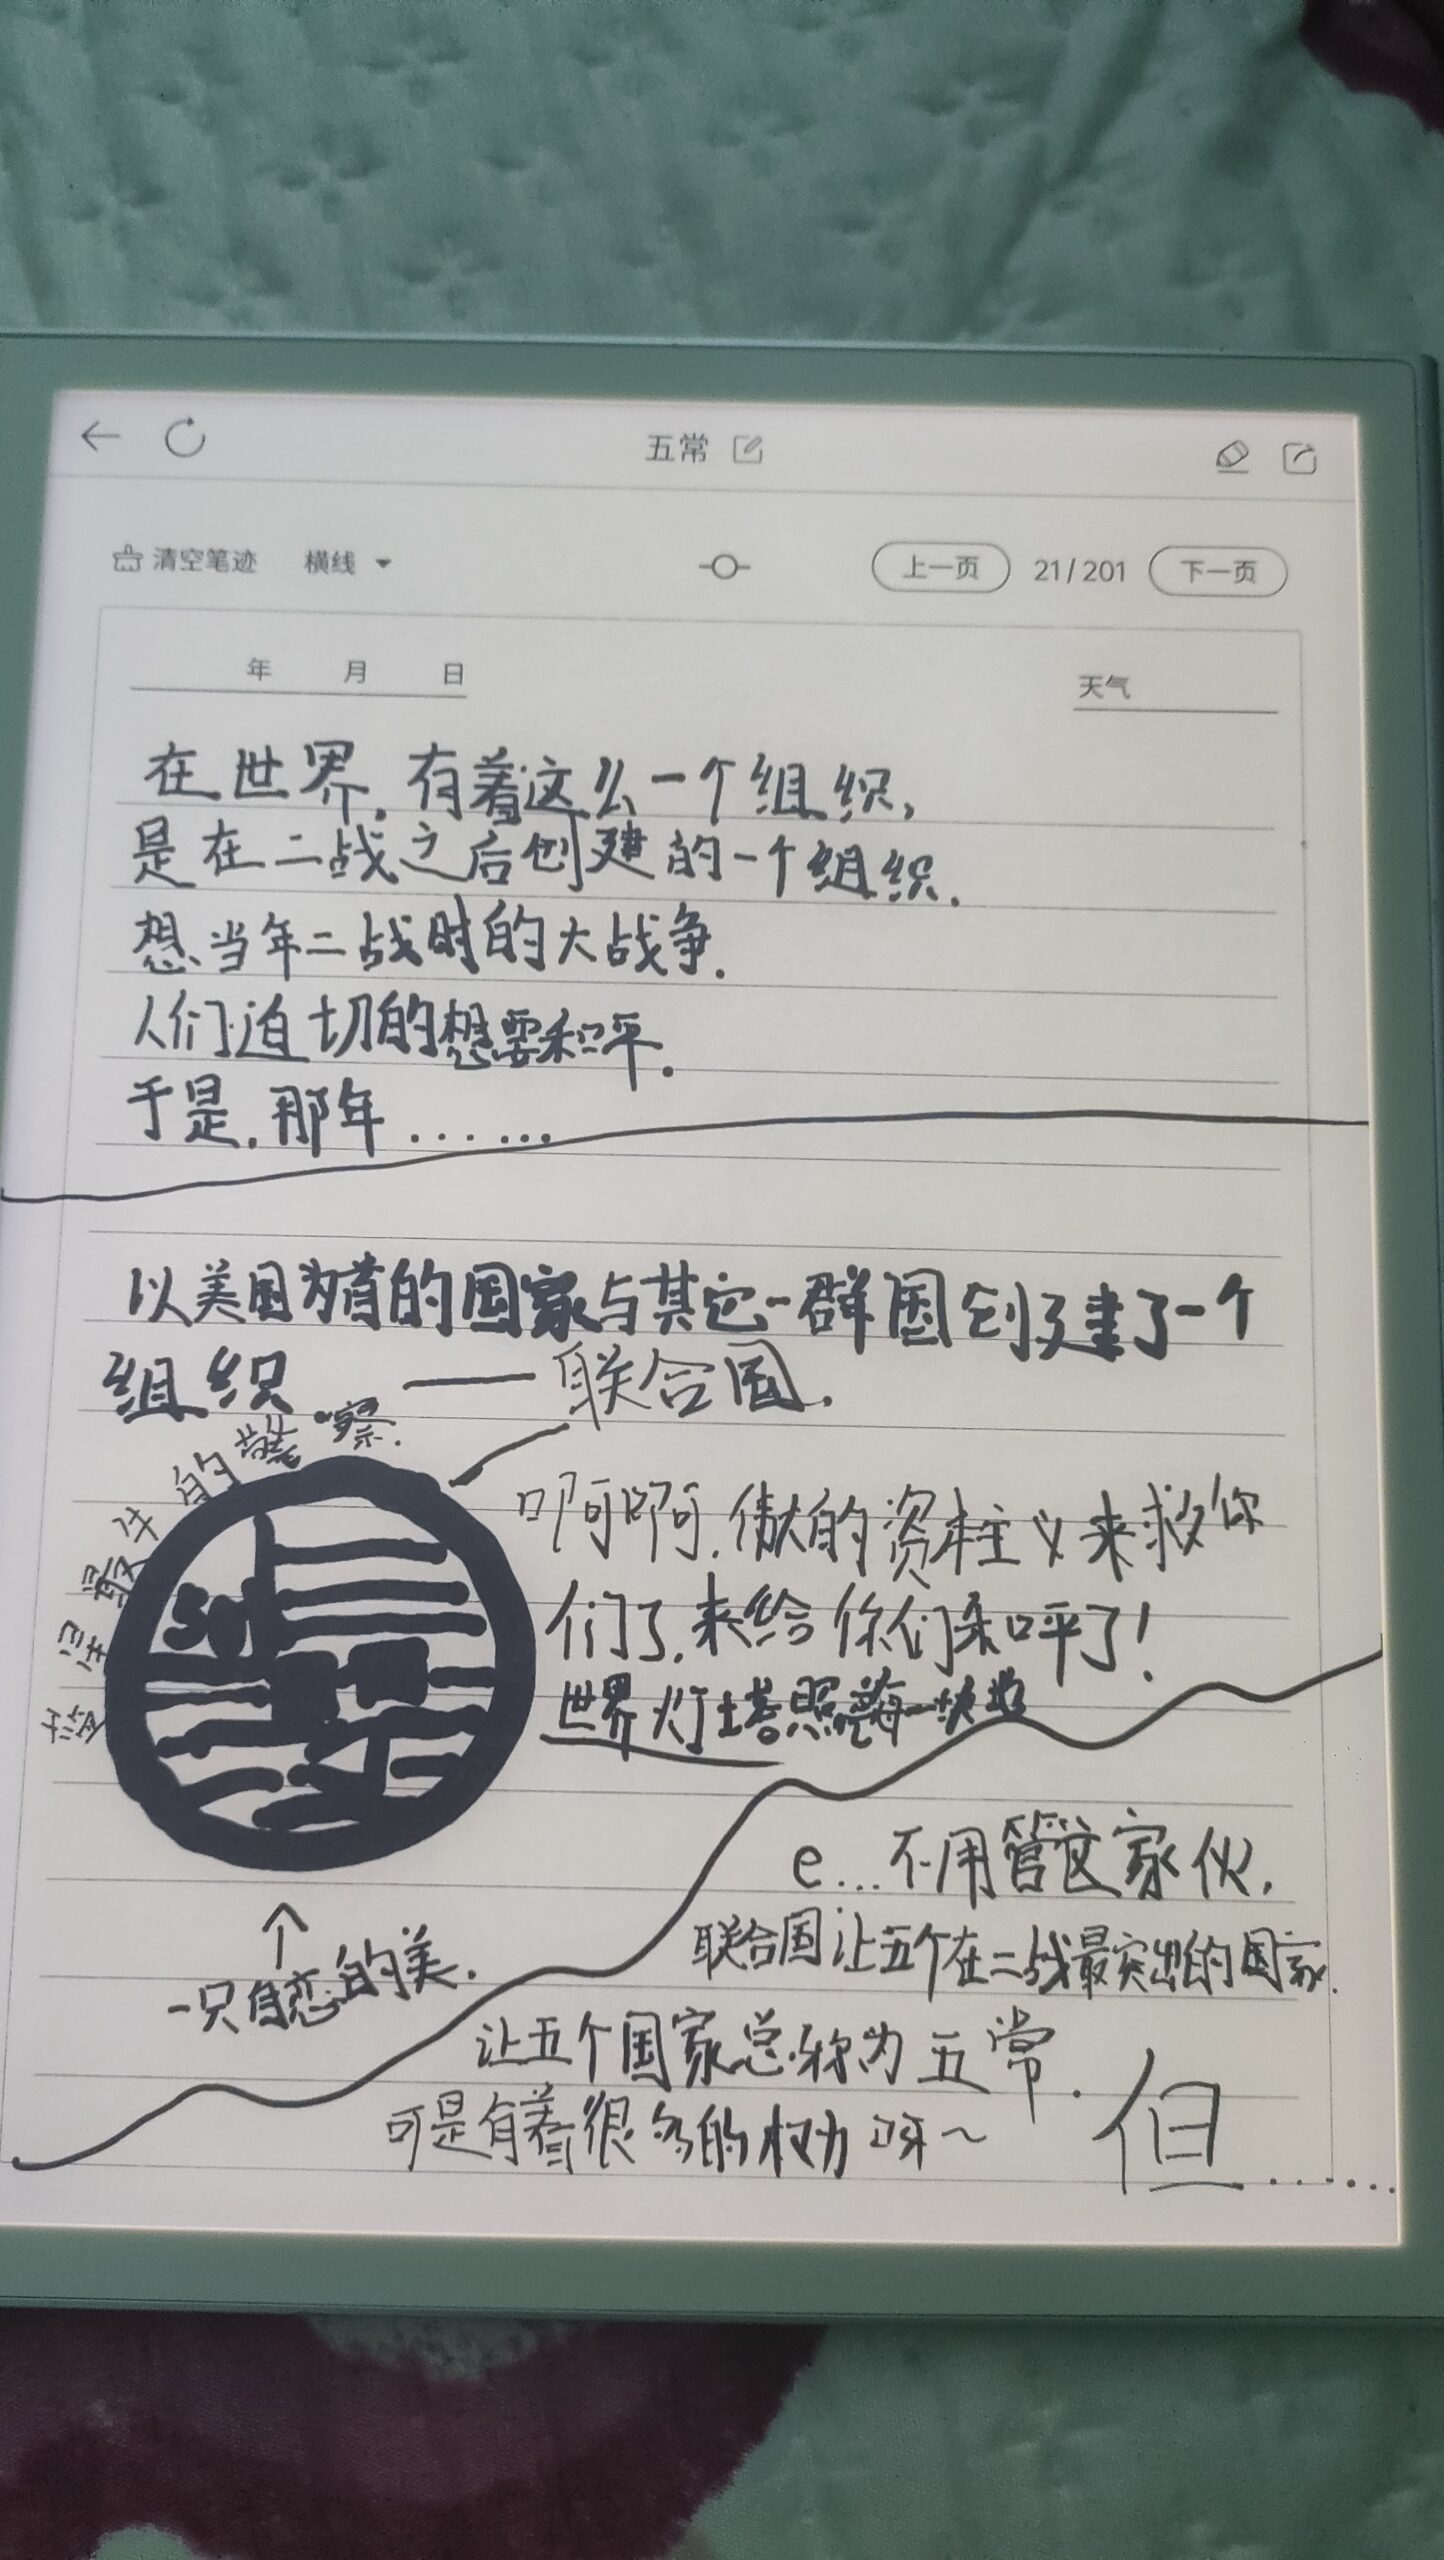 五常
清空笔迹 横线
上一页 21/201 下一页
年 月 日 天气
在世界,有着这么一个组织,
是在二战之后创建的一个组织.
想当年二战时的大战争.
人们迫切的想要和平.
于是,那年……
以美国为首的国家与其它一群国创建了一个
组织——联合国.
最牛的警察.
啊啊,伟大的资本主义来救你
们了,来给你们和平了!
世界灯塔照亮每一块地
e...不用管这家伙,
联合国让五个在二战最突出的国家.
一只自恋的美.
让五个国家总称为五常.
可是有着很多的权力呀~
但……